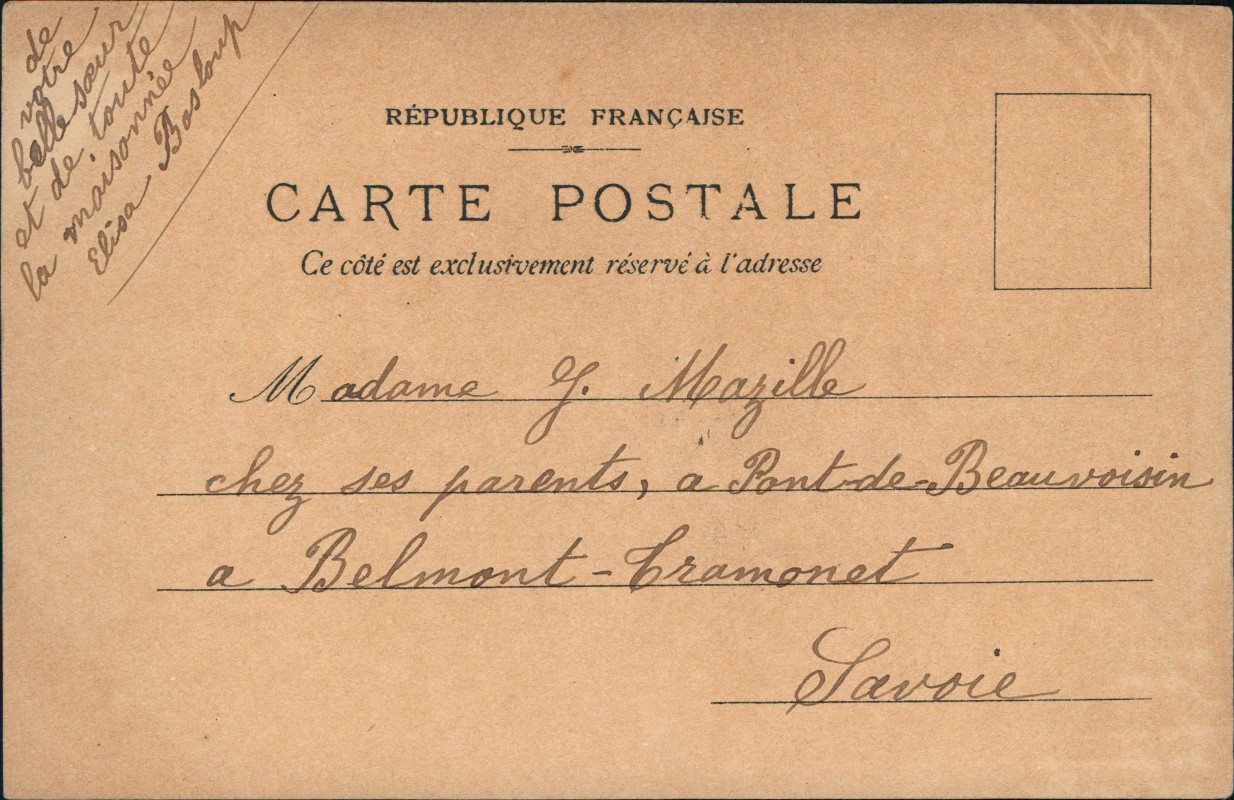 de
votre
belle sœur
et de toute
la maisonnée
Elisa Basloup
RÉPUBLIQUE FRANÇAISE
CARTE POSTALE
Ce côté est exclusivement réservé à l'adresse
Madame J. Mazille
chez ses parents, a Pont-de-Beauvoisin
a Belmont-Tramonet
Savoie